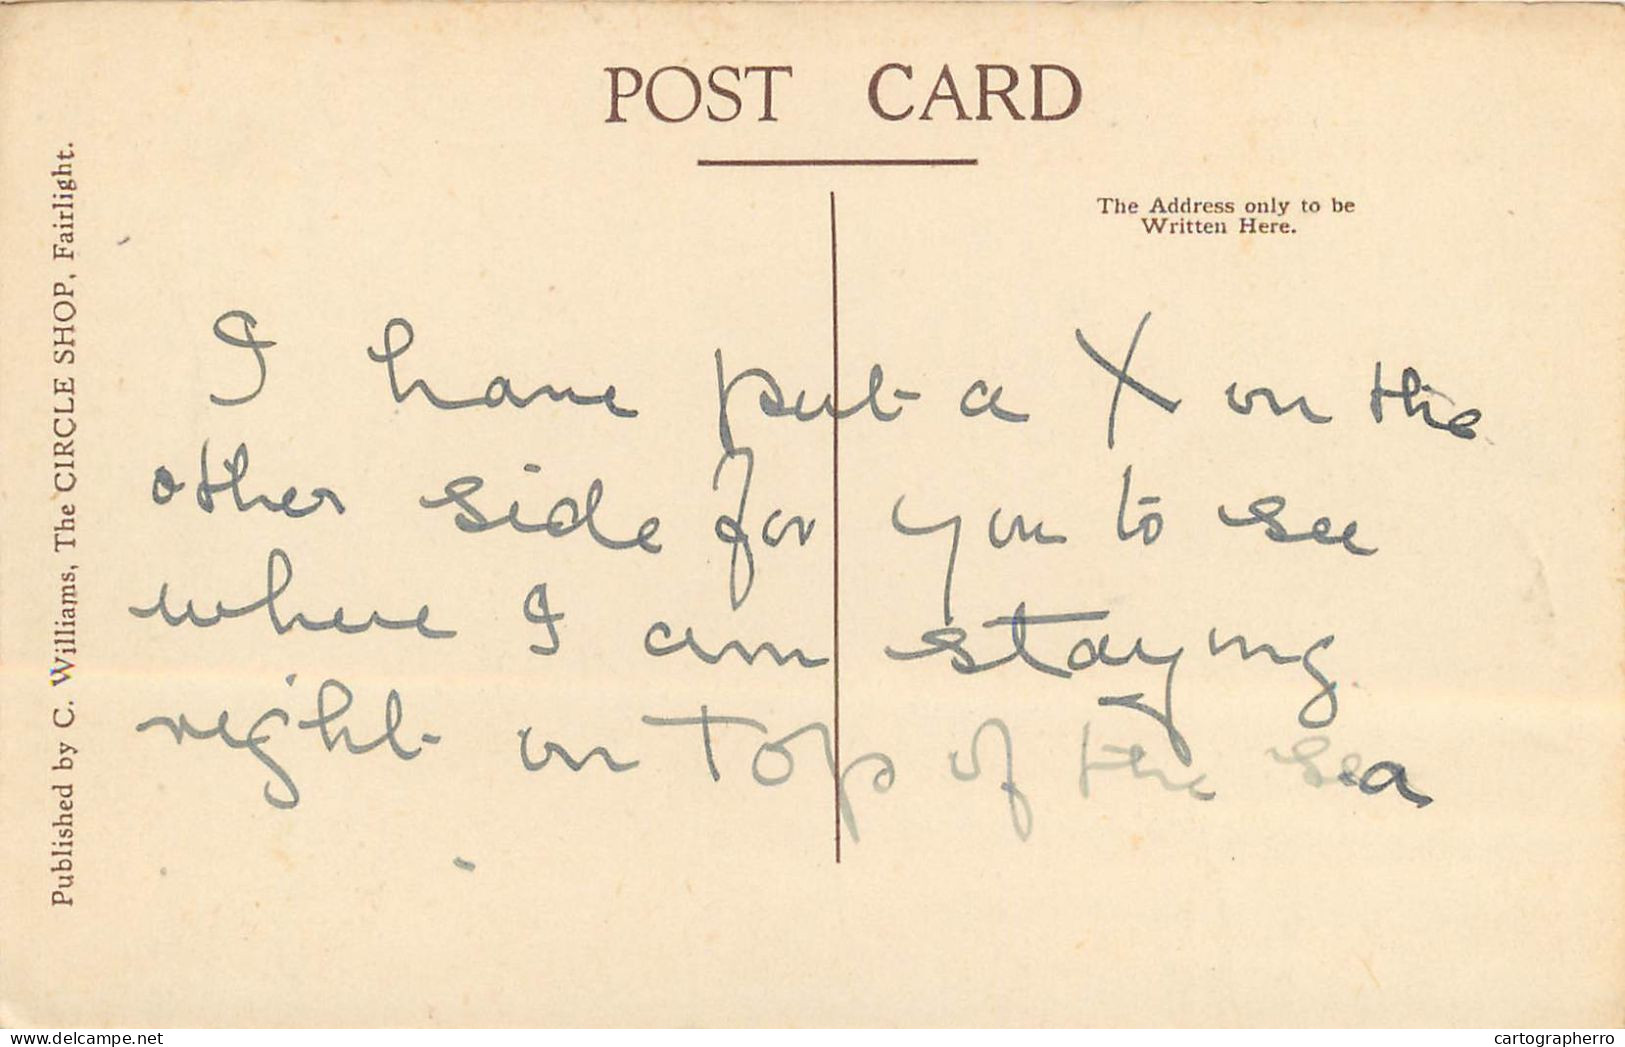 POST CARD
The Address only to be
Written Here.
Published by C. Williams, The CIRCLE SHOP, Fairlight.
I have put a X on the
other side for you to see
where I am staying
right on top of the sea
delcampe.net
cartographerro